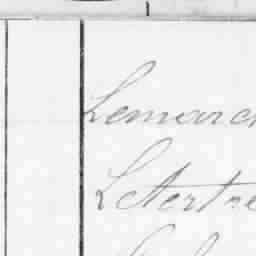 Lemarch
Letertre